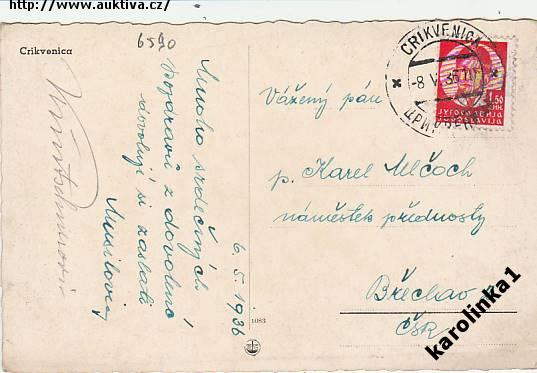 http://www.auktiva.cz/
6590
Crikvenica
Mnoho srdečných
pozdravů z dovolené
dovolují si zaslati
Musilovi
6.5.1936
1083
CRIKVENICA
-8.V.36
1.50
ДИН.
ЈУГОСЛАВИЈА
JUGOSLAVIJA
Vážený pán
p. Karel Mlčoch
náměstek přednosty
Břeclav
ČSR
karolinka1